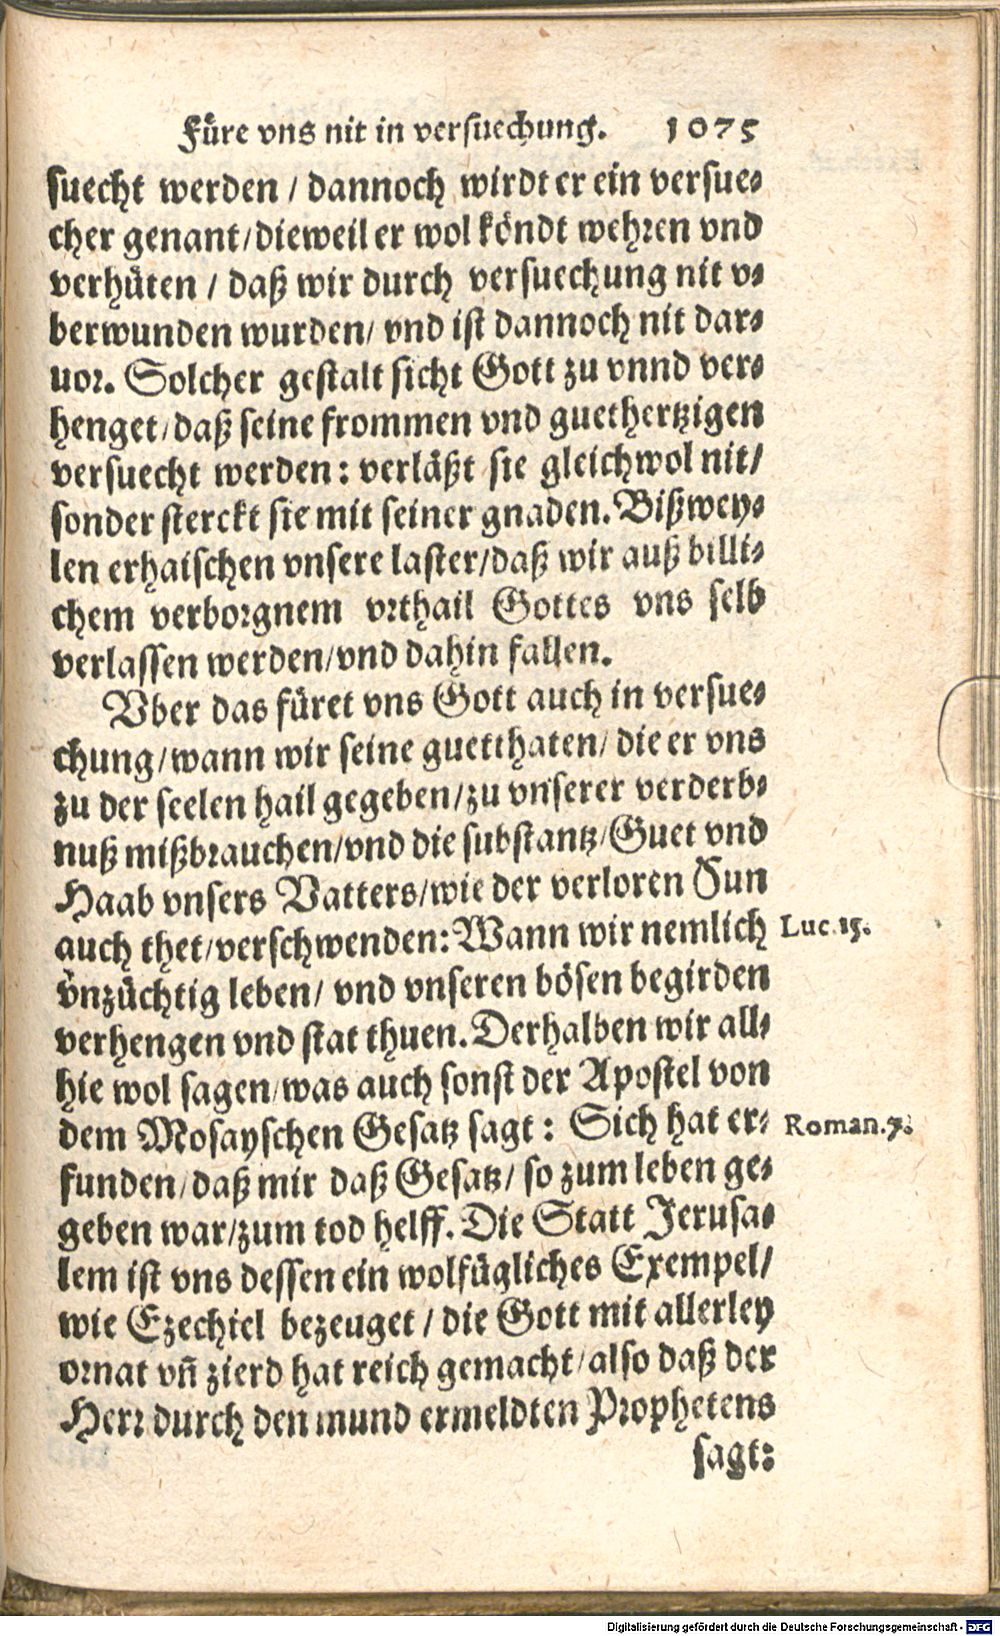 Füre vns nit in versuechung. 1075
suecht werden / dannoch wirdt er ein versue⸗
cher genant/dieweil er wol köndt wehren vnd
verhüten / daß wir durch versuechung nit v⸗
berwunden wurden/ vnd ist dannoch nit dar⸗
uor. Solcher gestalt sicht Gott zu vnnd ver⸗
henget/daß seine frommen vnd guethertzigen
versuecht werden: verläßt sie gleichwol nit/
sonder sterckt sie mit seiner gnaden. Bißwey⸗
len erhaischen vnsere laster/daß wir auß billi⸗
chem verborgnem vrthail Gottes vns selb
verlassen werden/vnd dahin fallen.
Vber das füret vns Gott auch in versue⸗
chung/wann wir seine guetthaten/ die er vns
zu der seelen hail gegeben/zu vnserer verderb⸗
nuß mißbrauchen/vnd die substantz/Guet vnd
Haab vnsers Vatters/wie der verloren Sun
auch thet/verschwenden: Wann wir nemlich
Luc.15.
vnzüchtig leben/ vnd vnseren bösen begirden
verhengen vnd stat thuen. Derhalben wir all⸗
hie wol sagen/was auch sonst der Apostel von
dem Mosayschen Gesatz sagt: Sich hat er⸗
Roman.7.
funden/daß mir daß Gesatz/ so zum leben ge⸗
geben war/zum tod helff. Die Statt Jerusa⸗
lem ist vns dessen ein wolfügliches Exempel/
wie Ezechiel bezeuget / die Gott mit allerley
ornat vñ zierd hat reich gemacht/also daß der
Herr durch den mund ermeldten Prophetens
sagt:
Digitalisierung gefördert durch die Deutsche Forschungsgemeinschaft - DFG